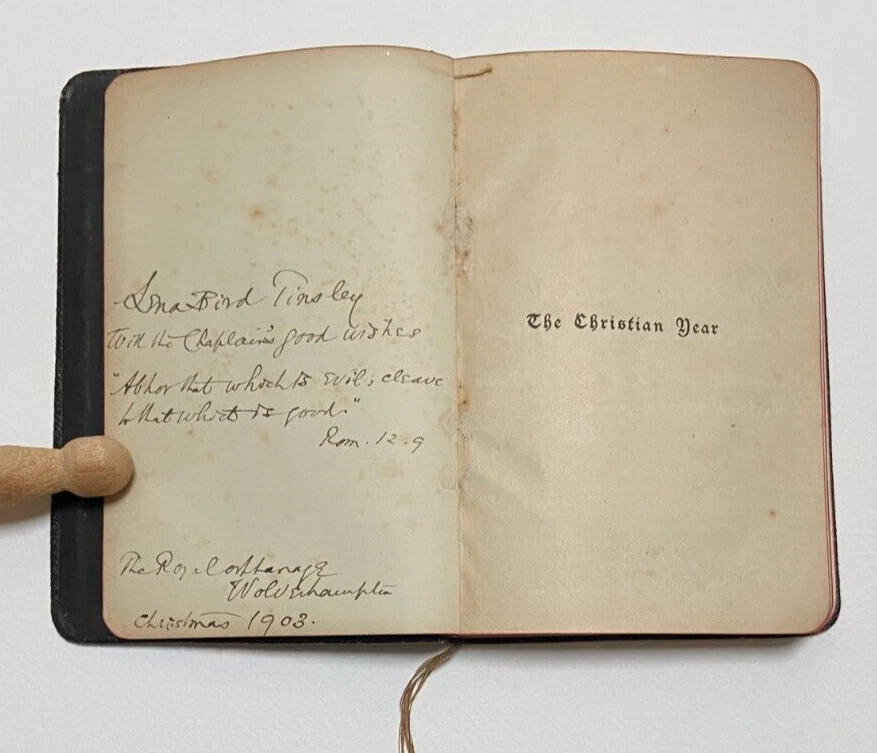 Bird Tinsley
With the Chaplain's good wishes
"Abhor that which is evil; cleave
to that which is good."
Rom. 12.9
The Royal orphanage
Wolverhampton
Christmas 1903.
The Christian Year